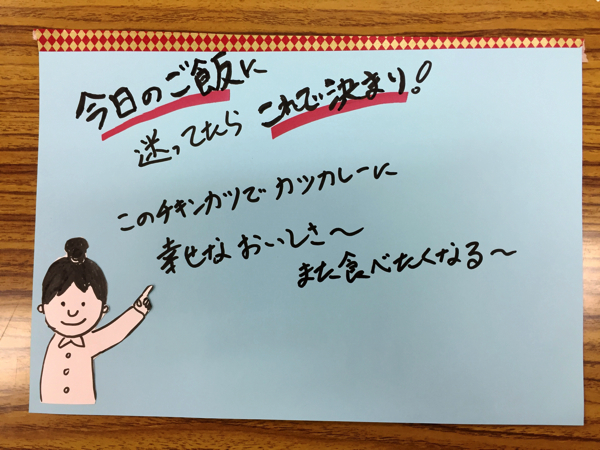 今日のご飯に
迷ってたら これで決まり!
このチキンカツで カツカレーに
幸せな おいしさ〜
また食べたくなる〜